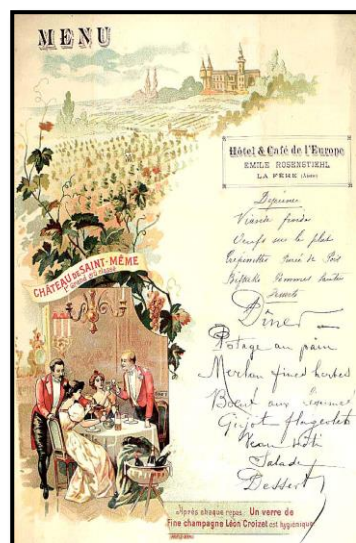 MENU
Hôtel & Café de l'Europe
EMILE ROSENSTIEHL
LA FÈRE (Aisne)
CHÂTEAU DE SAINT-MÊME
Déjeuner
Viande froide
Oeufs sur le plat
Crépinettes Purée de Pois
Biftecks Pommes sautées
Desserts
Dîner
Potage au pain
Merlan fines herbes
Boeuf aux légumes
Gigot flageolets
Veau rôti
Salade
Dessert
Après chaque repas Un verre de
Fine champagne Léon Croizet est hygiénique